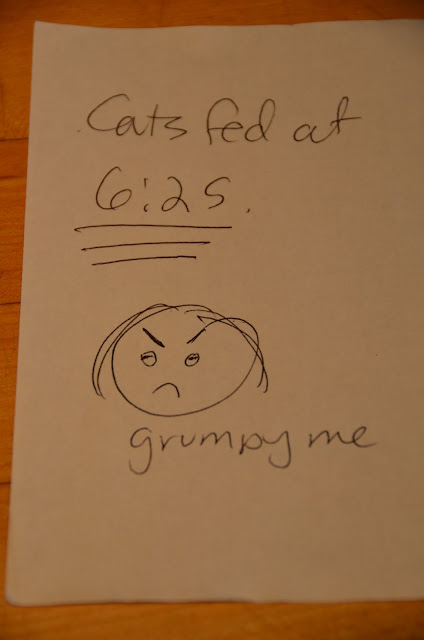 Cats fed at
6:25.
grumpy me